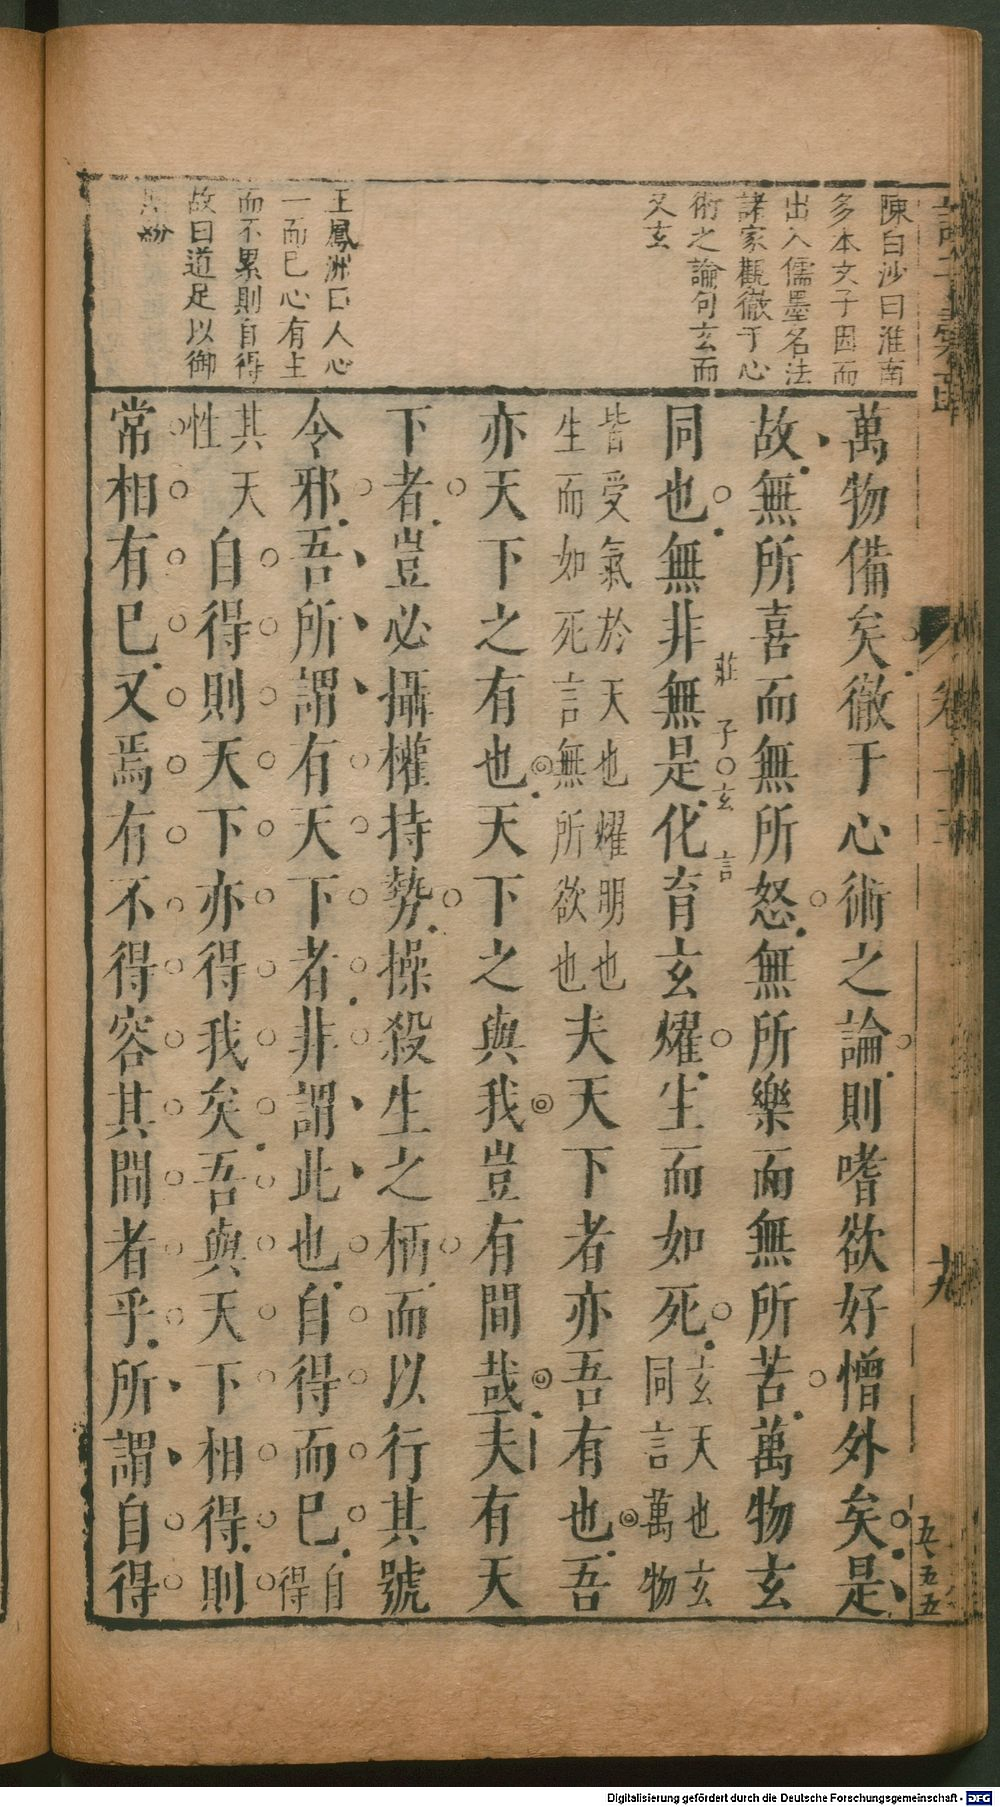 陳白沙曰淮南
多本文子因而
出入儒墨名法
諸家觀徹于心
術之論句玄而
又玄
王鳳洲曰人心
一而已心有主
而不累則自得
故曰道足以御
萬物備矣徹于心術之論則嗜欲好憎外矣是
故無所喜而無所怒無所樂而無所苦萬物玄
莊子○玄言
同也無非無是化育玄燿生而如死玄天也玄同言萬物
皆受氣於天也燿明也生而如死言無所欲也夫天下者亦吾有也吾
亦天下之有也天下之與我豈有間哉夫有天
下者豈必攝權持勢操殺生之柄而以行其號
令邪吾所謂有天下者非謂此也自得而已自得
其天性自得則天下亦得我矣吾與天下相得則
常相有已又焉有不得容其間者乎所謂自得
卷
九
五五五
Digitalisierung gefördert durch die Deutsche Forschungsgemeinschaft - DFG